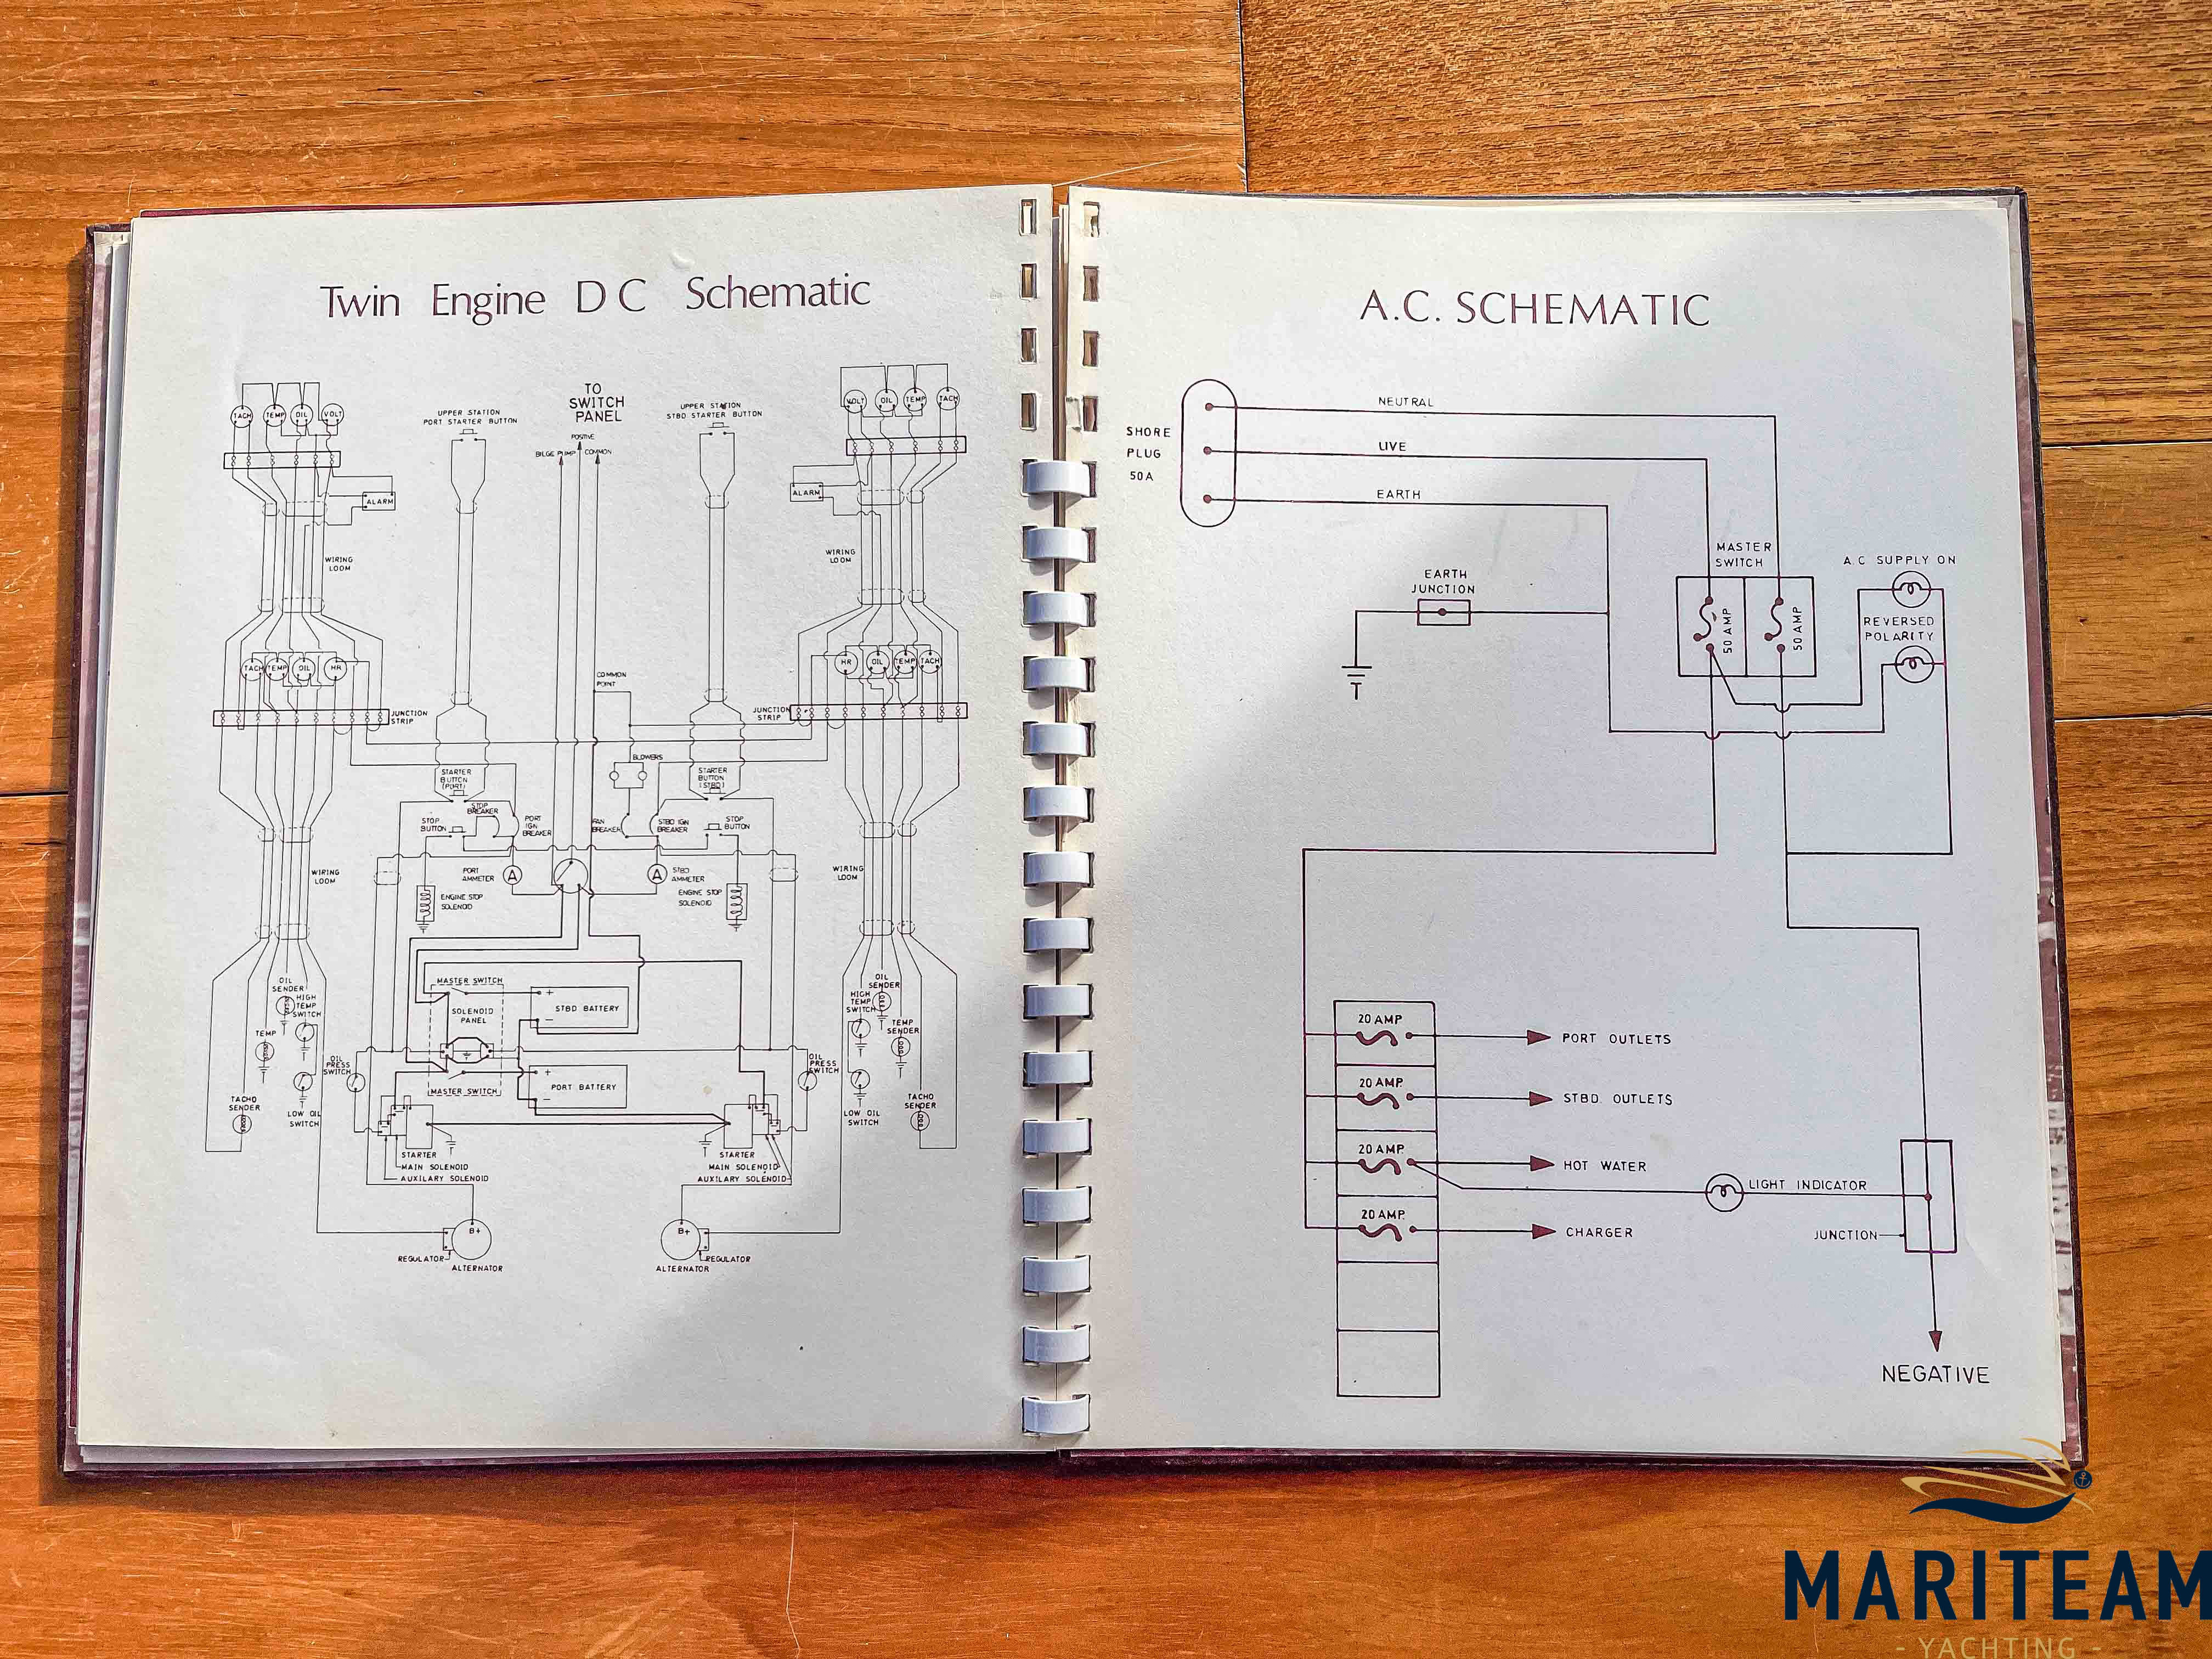 Twin Engine D C Schematic
TACH TEMP OIL VOLT
UPPER STATION
PORT STARTER BUTTON
TO
SWITCH
PANEL
POSITIVE
BILGE PUMP COMMON
UPPER STATION
STBD STARTER BUTTON
VOLT OIL TEMP TACH
ALARM
ALARM
WIRING
LOOM
WIRING
LOOM
TACH TEMP OIL HR
HR OIL TEMP TACH
COMMON
POINT
JUNCTION
STRIP
JUNCTION
STRIP
BLOWERS
STARTER
BUTTON
(PORT)
STARTER
BUTTON
(STBD)
STOP
BREAKER
STOP
BUTTON
PORT
IGN
BREAKER
FAN
BREAKER
STBD IGN
BREAKER
STOP
BUTTON
WIRING
LOOM
PORT
AMMETER
A
A
STBD
AMMETER
WIRING
LOOM
ENGINE STOP
SOLENOID
ENGINE STOP
SOLENOID
OIL
SENDER
HIGH
TEMP
SWITCH
TEMP
MASTER SWITCH
SOLENOID
PANEL
+
STBD BATTERY
-
OIL
SENDER
HIGH
TEMP
SWITCH
TEMP
SENDER
OIL
PRESS
SWITCH
OIL
PRESS
SWITCH
MASTER SWITCH
+
PORT BATTERY
-
TACHO
SENDER
LOW OIL
SWITCH
LOW OIL
SWITCH
TACHO
SENDER
STARTER
MAIN SOLENOID
AUXILARY SOLENOID
STARTER
MAIN SOLENOID
AUXILARY SOLENOID
B+
REGULATOR
ALTERNATOR
B+
REGULATOR
ALTERNATOR
A.C. SCHEMATIC
SHORE
PLUG
50A
NEUTRAL
LIVE
EARTH
EARTH
JUNCTION
MASTER
SWITCH
50 AMP
50 AMP
A.C SUPPLY ON
REVERSED
POLARITY
20 AMP
PORT OUTLETS
20 AMP.
STBD. OUTLETS
20 AMP.
HOT WATER
LIGHT INDICATOR
20 AMP.
CHARGER
JUNCTION
NEGATIVE
MARITEAM
- YACHTING -